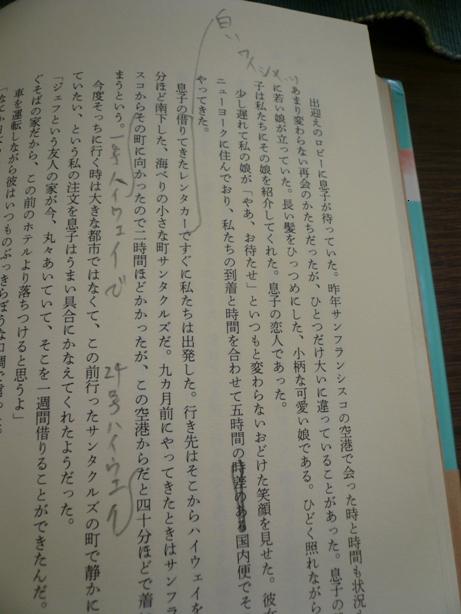 白いワイシャツ
出迎えのロビーに息子が待っていた。昨年サンフランシスコの空港で会った時と時間も状況も
あまり変わらない再会のかたちだったが、ひとつだけ大いに違っていることがあった。息子の
に若い娘が立っていた。長い髪をひっつめにした、小柄な可愛い娘である。ひどく照れながら
子は私たちにその娘を紹介してくれた。息子の恋人であった。
少し遅れて私の娘が「やあ、お待たせ」といつもと変わらないおどけた笑顔を見せた。彼女
ニューヨークに住んでおり、私たちの到着と時間を合わせて五時間の時差のある国内便でそ
やってきた。
息子の借りてきたレンタカーですぐに私たちは出発した。行き先はそこからハイウェイを
分ほど南下した、海べりの小さな町サンタクルズだ。九カ月前にやってきたときはサンフラ
スコからその町に向かったので二時間ほどかかったが、この空港からだと四十分ほどで着
まうという。
1号ハイウェイで
24号ハイウェイ
今度そっちに行く時は大きな都市ではなくて、この前行ったサンタクルズの町で静かに
ていたい、という私の注文を息子はうまい具合にかなえてくれたようだった。
「ジェフという友人の家が今、丸々あいていて、そこを一週間借りることができたんだ。
ぐそばの家だから、この前のホテルより落ちつけると思うよ」
車を運転しながら彼はいつものぶっきらぼうな口調で言った。